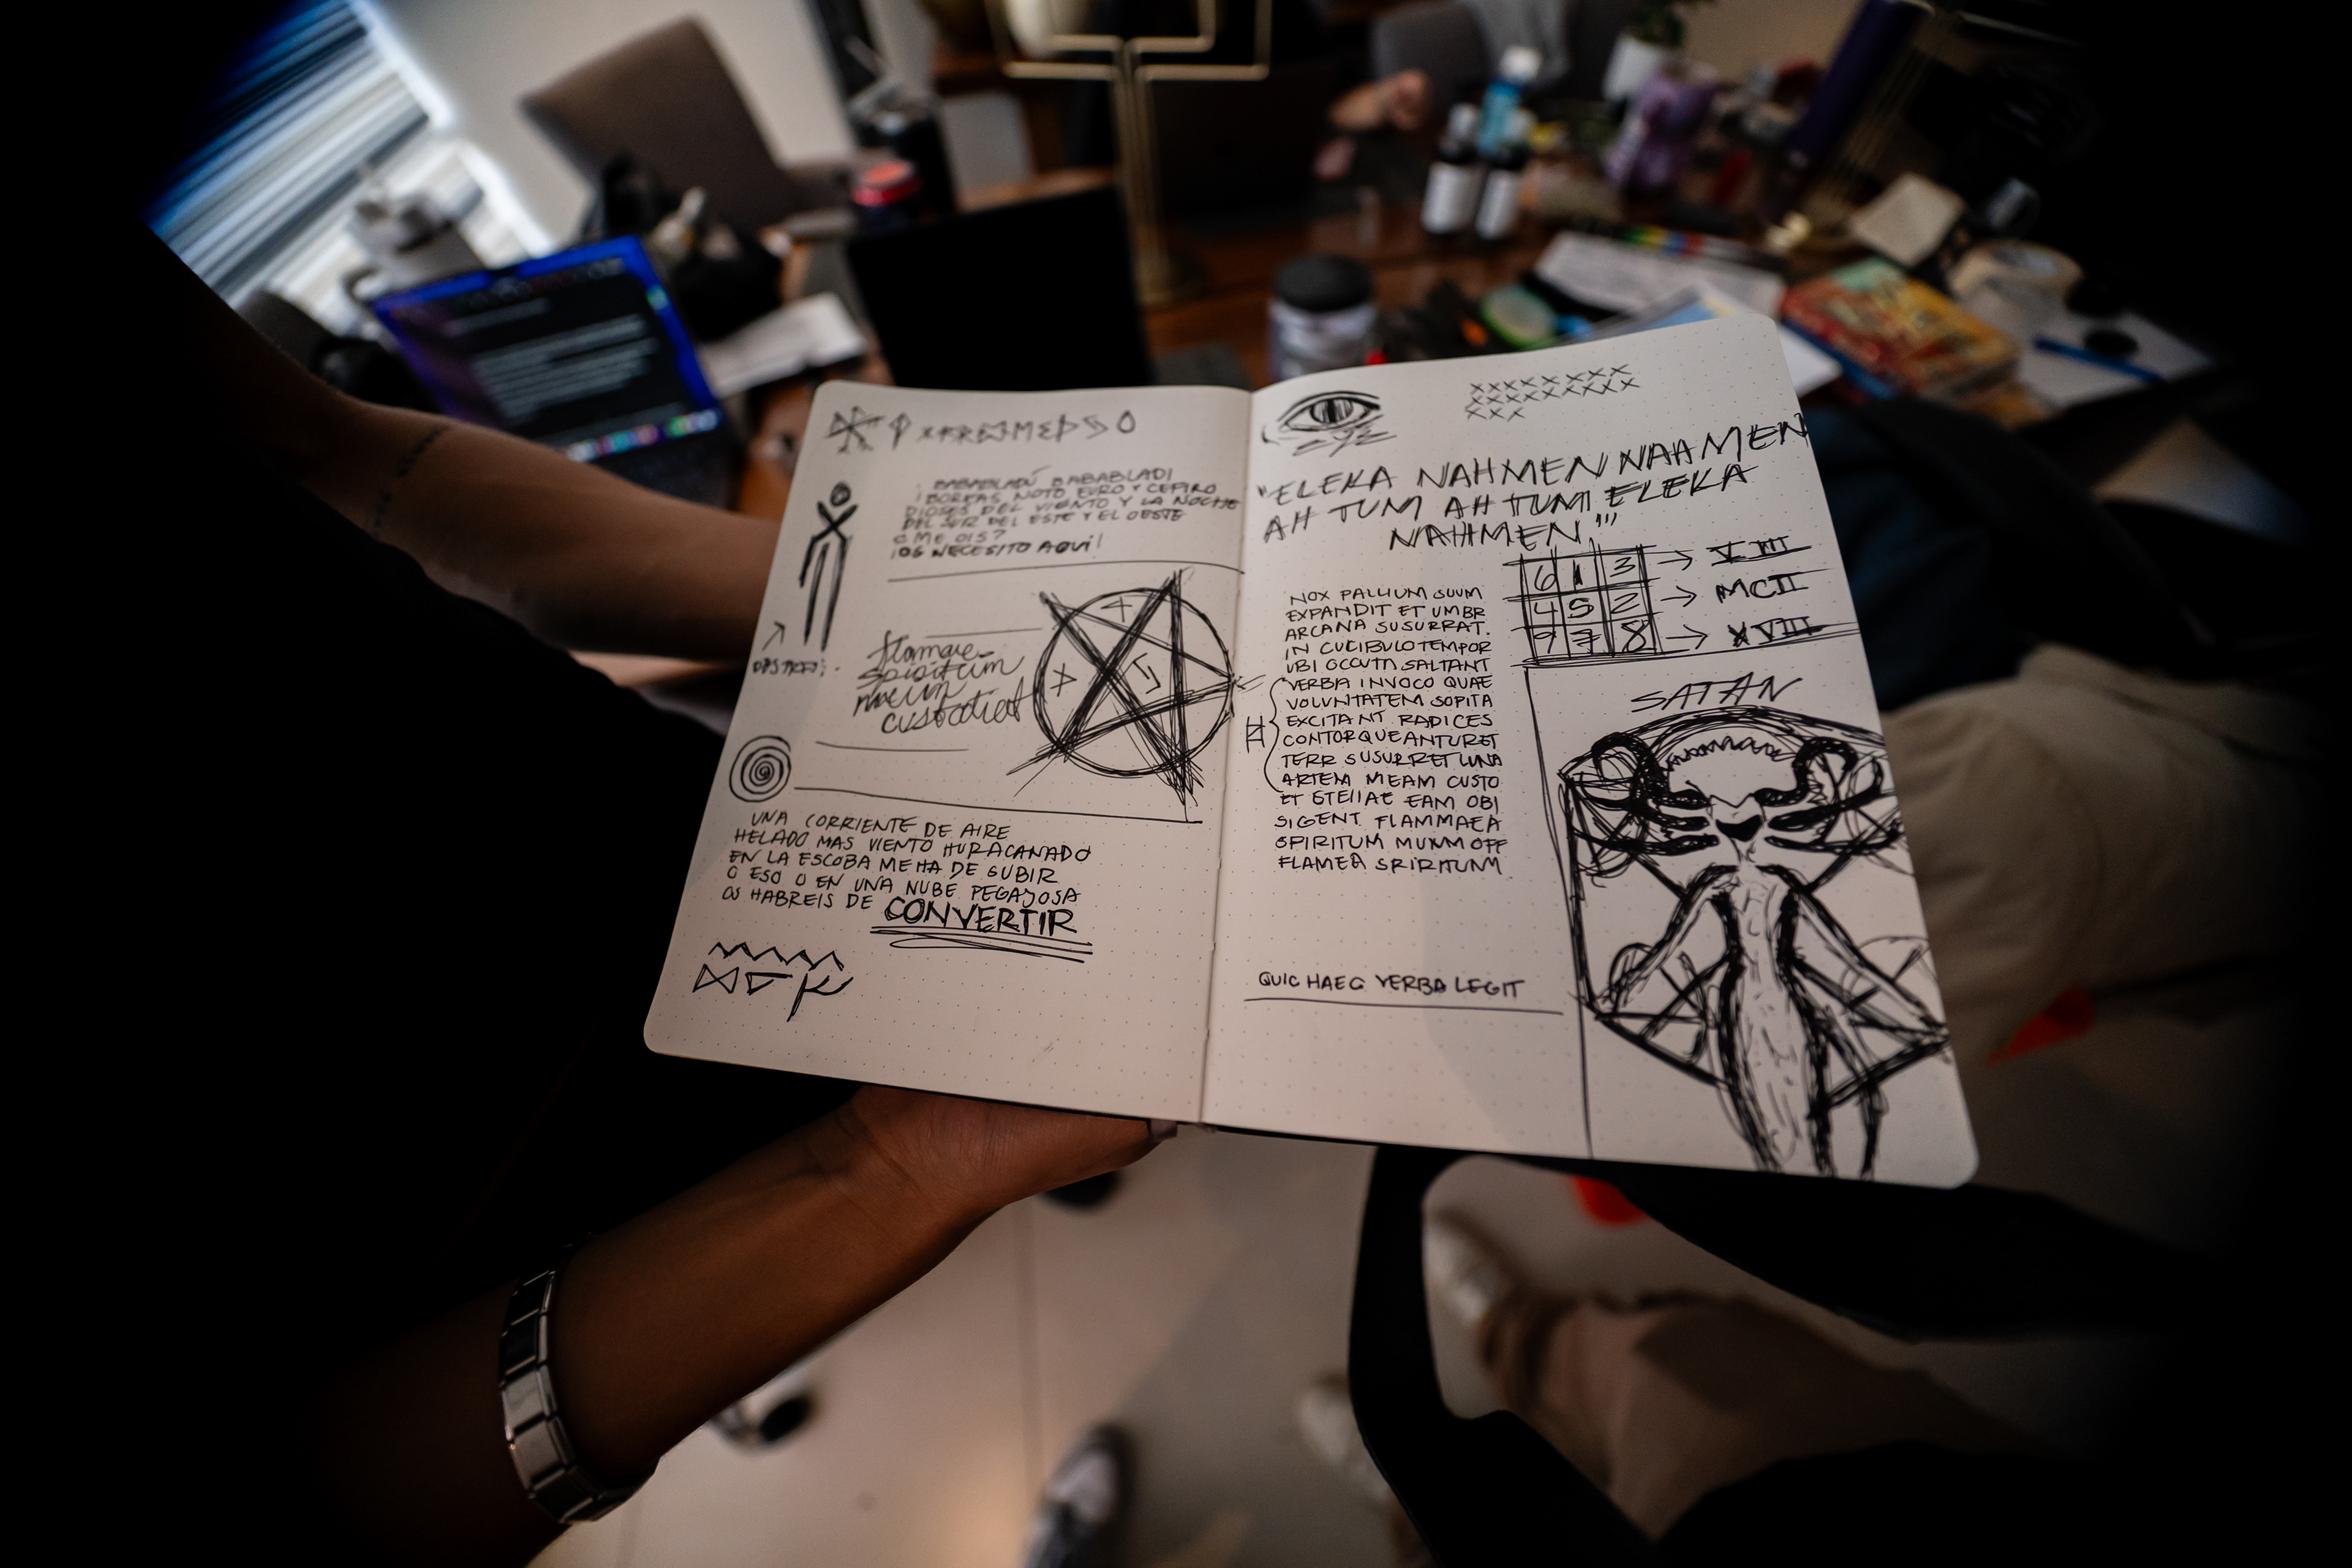 BABABLADÚ BABABLADI
¡BOREAS NOTO, EURO Y CEFIRO
DIOSES DEL VIENTO Y LA NOCHE
DEL SUR DEL ESTE Y EL OESTE
¿ME OIS?
¡OS NECESITO AQUÍ!
flamae
spiritum
meum
custodiet
UNA CORRIENTE DE AIRE
HELADO MAS VIENTO HURACANADO
EN LA ESCOBA ME HA DE SUBIR
O ESO O EN UNA NUBE PEGAJOSA
OS HABREIS DE CONVERTIR
XXXXXXXX
XXXXXXXXX
XXX
"ELEKA NAHMEN NAHMEN
AH TUM AH TUM ELEKA
NAHMEN"
6 1 3 → VIII
4 5 2 → MCII
9 7 8 → XVIII
NOX PALLIUM SUUM
EXPANDIT ET UMBR
ARCANA SUSURRAT.
IN CUCIBULO TEMPOR
UBI OCCUTA SALTANT
VERBA INVOCO QUAE
VOLUNTATEM SOPITA
EXCITANT RADICES
CONTORQUEANTUR ET
TERR SUSURRET LUNA
ARTEM MEAM CUSTO
ET STELLAE EAM OBI
SIGENT FLAMMAEA
SPIRITUM MUMM OFF
FLAMEA SRIRITUM
QUIC HAEC VERBA LEGIT
SATAN